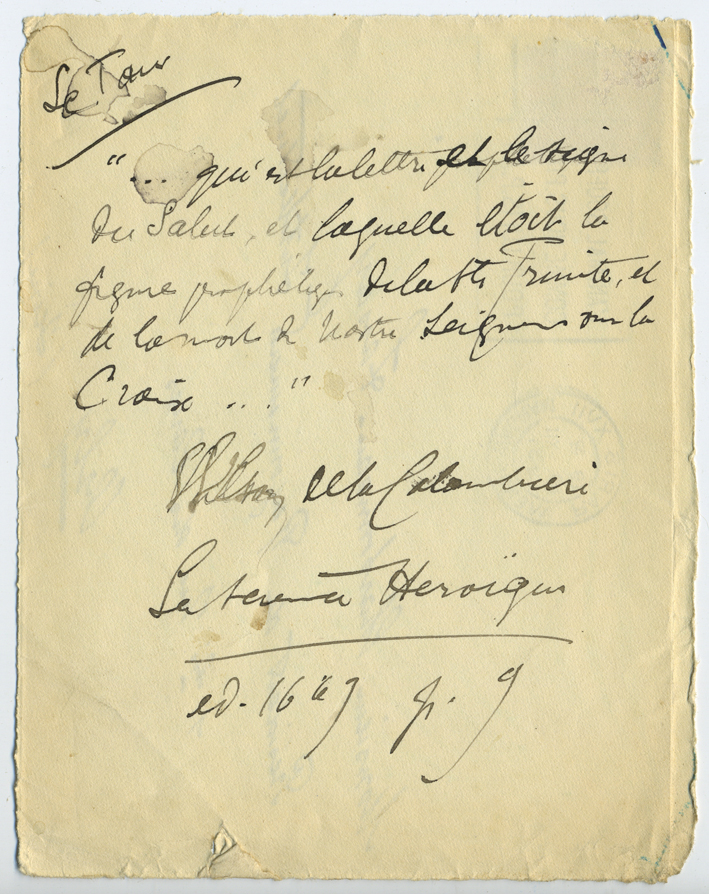 Le Tau
"... qui est la lettre et le signe
du Salut, et laquelle étoit la
figure prophétique de la Ste Trinité, et
de la mort de Nostre Seigneur sur la
Croix ..."
de la Colombiere
La Heroïque
ed. 16 p. 9